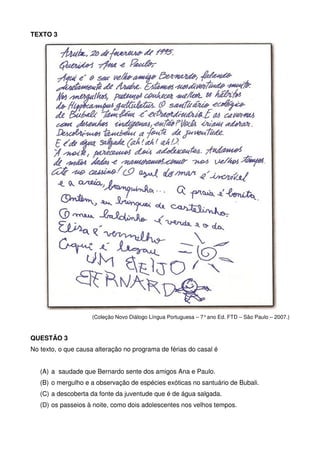 TEXTO 3
Aruba, 20 de fevereiro de 1995.
Queridos Ana e Paulo,
Aqui é o seu velho amigo Bernardo, falando
diretamente de Aruba. Estamos nos divertindo muito.
Nos mergulhos, pudemos conhecer melhor os hábitos
do Hippocampus guttulatus. O santuário ecológico
de Bubali também é extraordinário. E as cavernas
com desenhos indígenas, então? Vocês iriam adorar.
Descobrimos também a fonte da juventude.
E é da água salgada (ah! ah! ah!).
À noite, parecemos dois adolescentes. Andamos
de mãos dadas e namoramos como nos velhos tempos.
Até no cassino! O azul do mar é incrível
e a areia, branquinha... A praia é bonita.
Ontem, eu brinquei de castelinho.
O meu baldinho é verde e o da
Elisa é vermelho
Aqui é legau
UM BEIJO
BERNARDO
(Coleção Novo Diálogo Língua Portuguesa – 7°ano Ed. FTD – São Paulo – 2007.)
QUESTÃO 3
No texto, o que causa alteração no programa de férias do casal é
(A) a saudade que Bernardo sente dos amigos Ana e Paulo.
(B) o mergulho e a observação de espécies exóticas no santuário de Bubali.
(C) a descoberta da fonte da juventude que é de água salgada.
(D) os passeios à noite, como dois adolescentes nos velhos tempos.